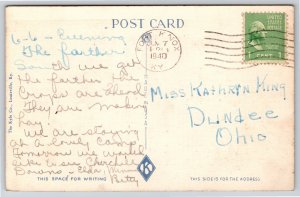 POST CARD
6-6- Evening
The farther
South we get
the farther the
crops are ahead
They are making
hay.
We are staying
at a lovely camp
Tomorrow we
Downs -
Betty
The Kyle Co., Louisville, Ky.
THIS SPACE FOR WRITING
K
FORT KNOX
JUN 7
1940
KY.
UNITED STATES
POSTAGE
1¢
Miss Kathryn King
Dundee
Ohio
THIS SIDE IS FOR THE ADDRESS